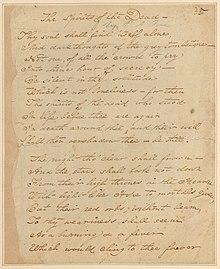 The Spirits of the Dead —
Thy soul shall find itself alone
'Mid dark thoughts of the grey tombstone
Not one, of all the crowd, to pry
Into thine hour of secrecy:
Be silent in that solitude
Which is not loneliness — for then
The spirits of the dead who stood
In life before thee are again
In death around thee, and their will
Shall then overshadow thee — be still.
The night tho' clear shall frown —
And the stars shall look not down
From their high thrones in the Heaven
With light like Hope to mortals given
But their red orbs, without beam,
To thy weariness shall seem
As a burning & a fever
Which would cling to thee forever